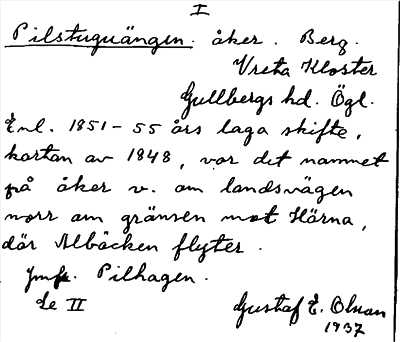 I
Pilstuguängen. åker. Berg.
Vreta Kloster
Gullbergs hd. Ögl.
Enl. 1851-55 års laga skifte,
kartan av 1848, var det namnet
på åker v. om landsvägen
norr om gränsen mot Härna,
där Albäcken flyter.
Jmfr. Pilhagen.
Se II
Gustaf E. Olsson
1937